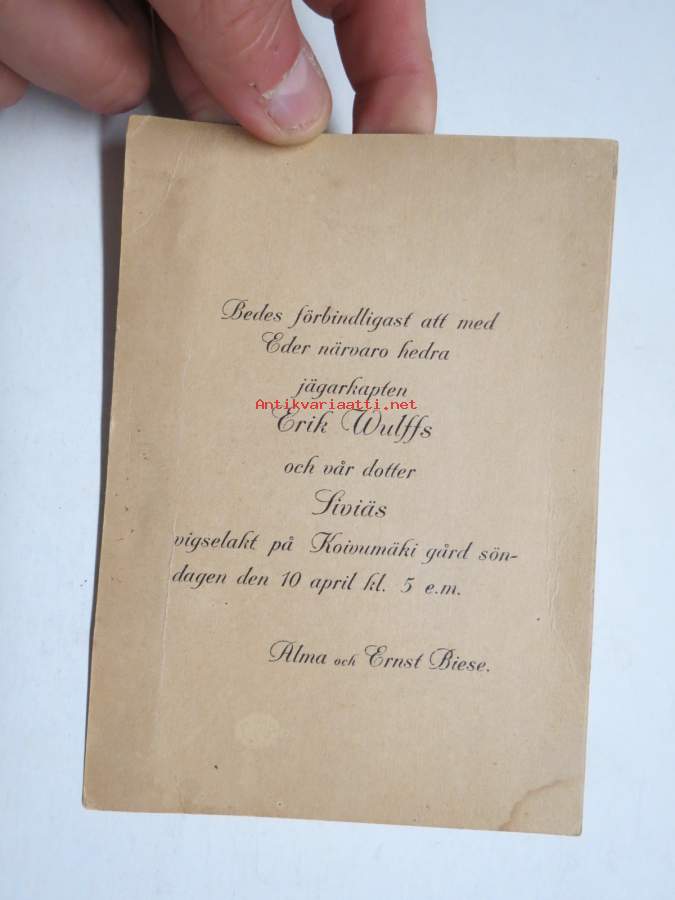 Bedes förbindligast att med
Eder närvaro hedra
jägarkapten
Antikvariaatti.net
Erik Wulffs
och vår dotter
Siviäs
vigselakt på Koivumäki gård sön-
dagen den 10 april kl. 5 e.m.
Alma och Ernst Biese.